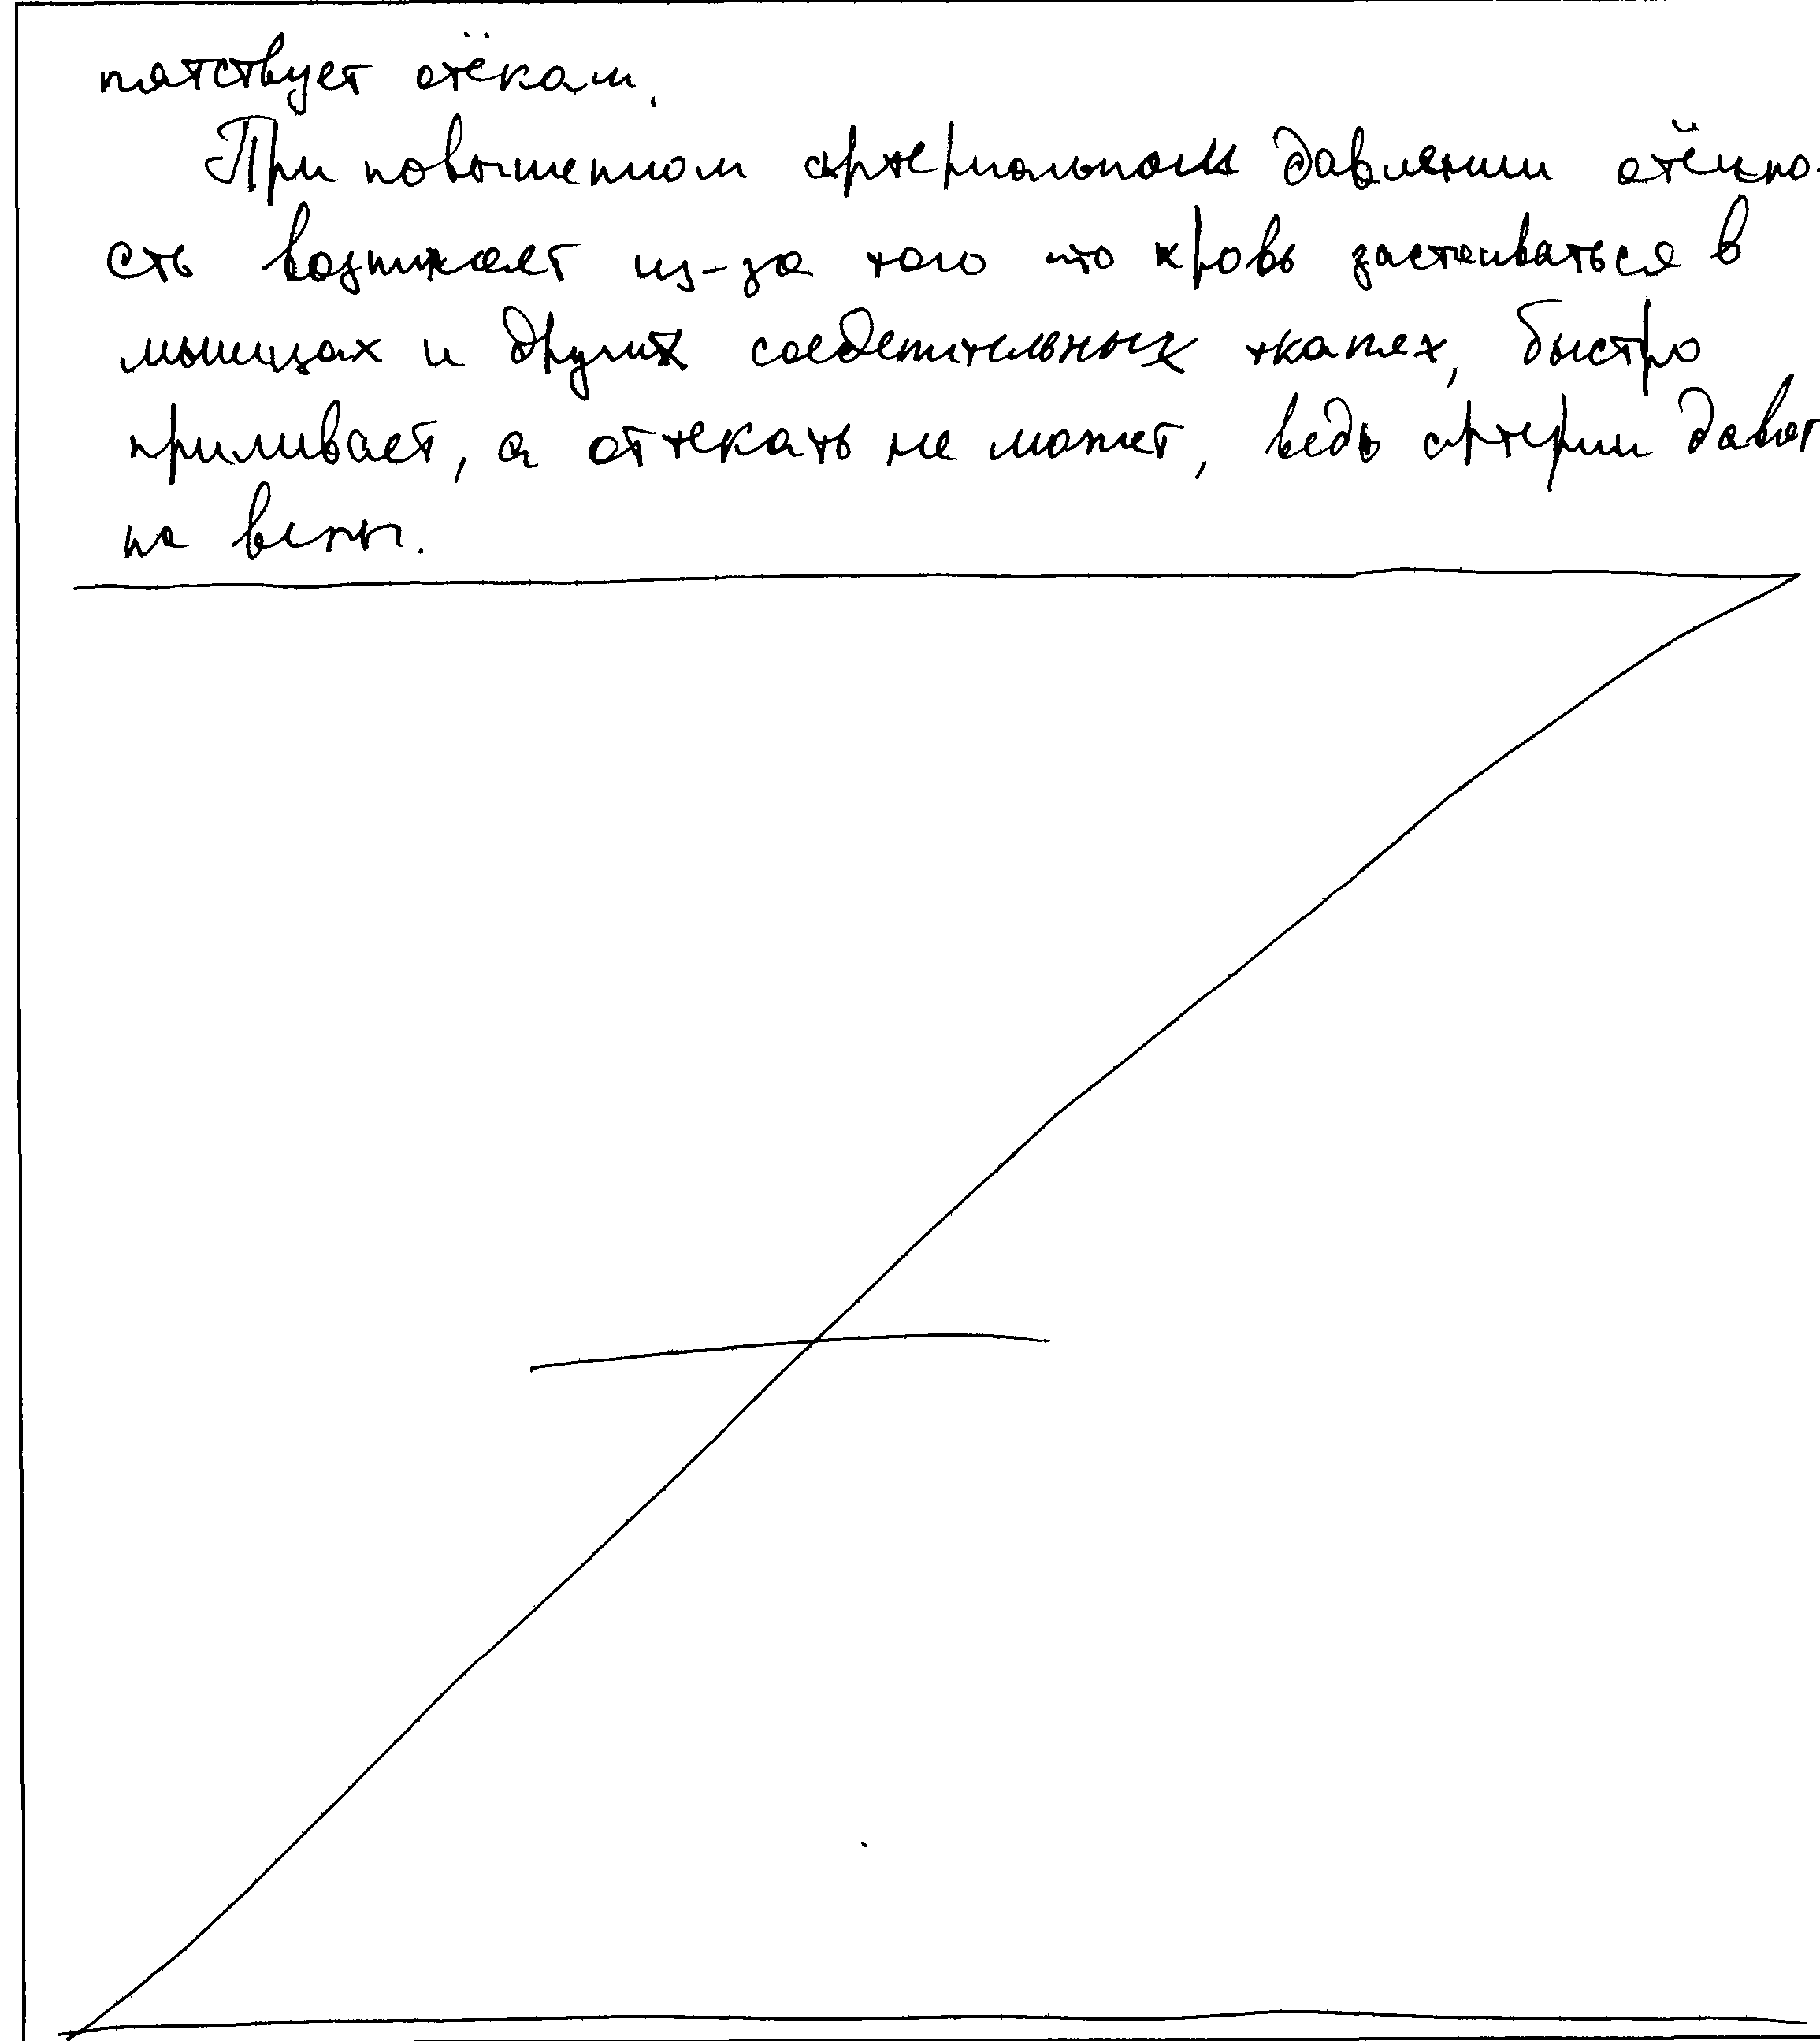 пятствует отёкам.
При повышенном артериальном давлении отёчно-
сть возникает из-за того что кровь застаиваться в
мышцах и других соединительных тканях, быстро
приливает, а оттекать не может, ведь артерии давят
на вены.